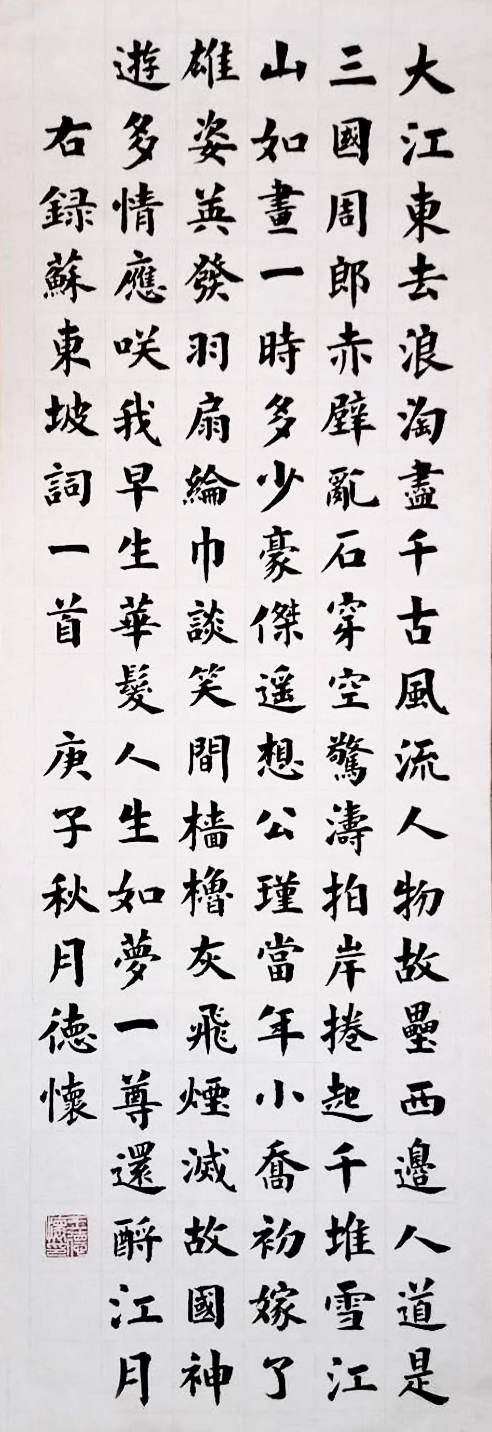 大江東去浪淘盡千古風流人物故壘西邊人道是
三國周郎赤壁亂石穿空驚濤拍岸捲起千堆雪江
山如畫一時多少豪傑遥想公瑾當年小喬初嫁了
雄姿英發羽扇綸巾談笑間檣櫓灰飛煙滅故國神
遊多情應咲我早生華髮人生如夢一尊還酹江月
右録蘇東坡詞一首 庚子秋月德懷